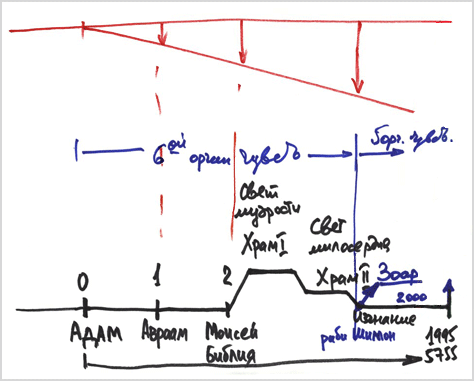 6ой орган чувств 5 орг. чувств.
Свет
мудрости
Храм I
Свет
милосердия
Храм II
Зоар
0 1 2
2000
АДАМ Авраам Моисей
Библия
раби Шимон
Изгнание
1995
5755